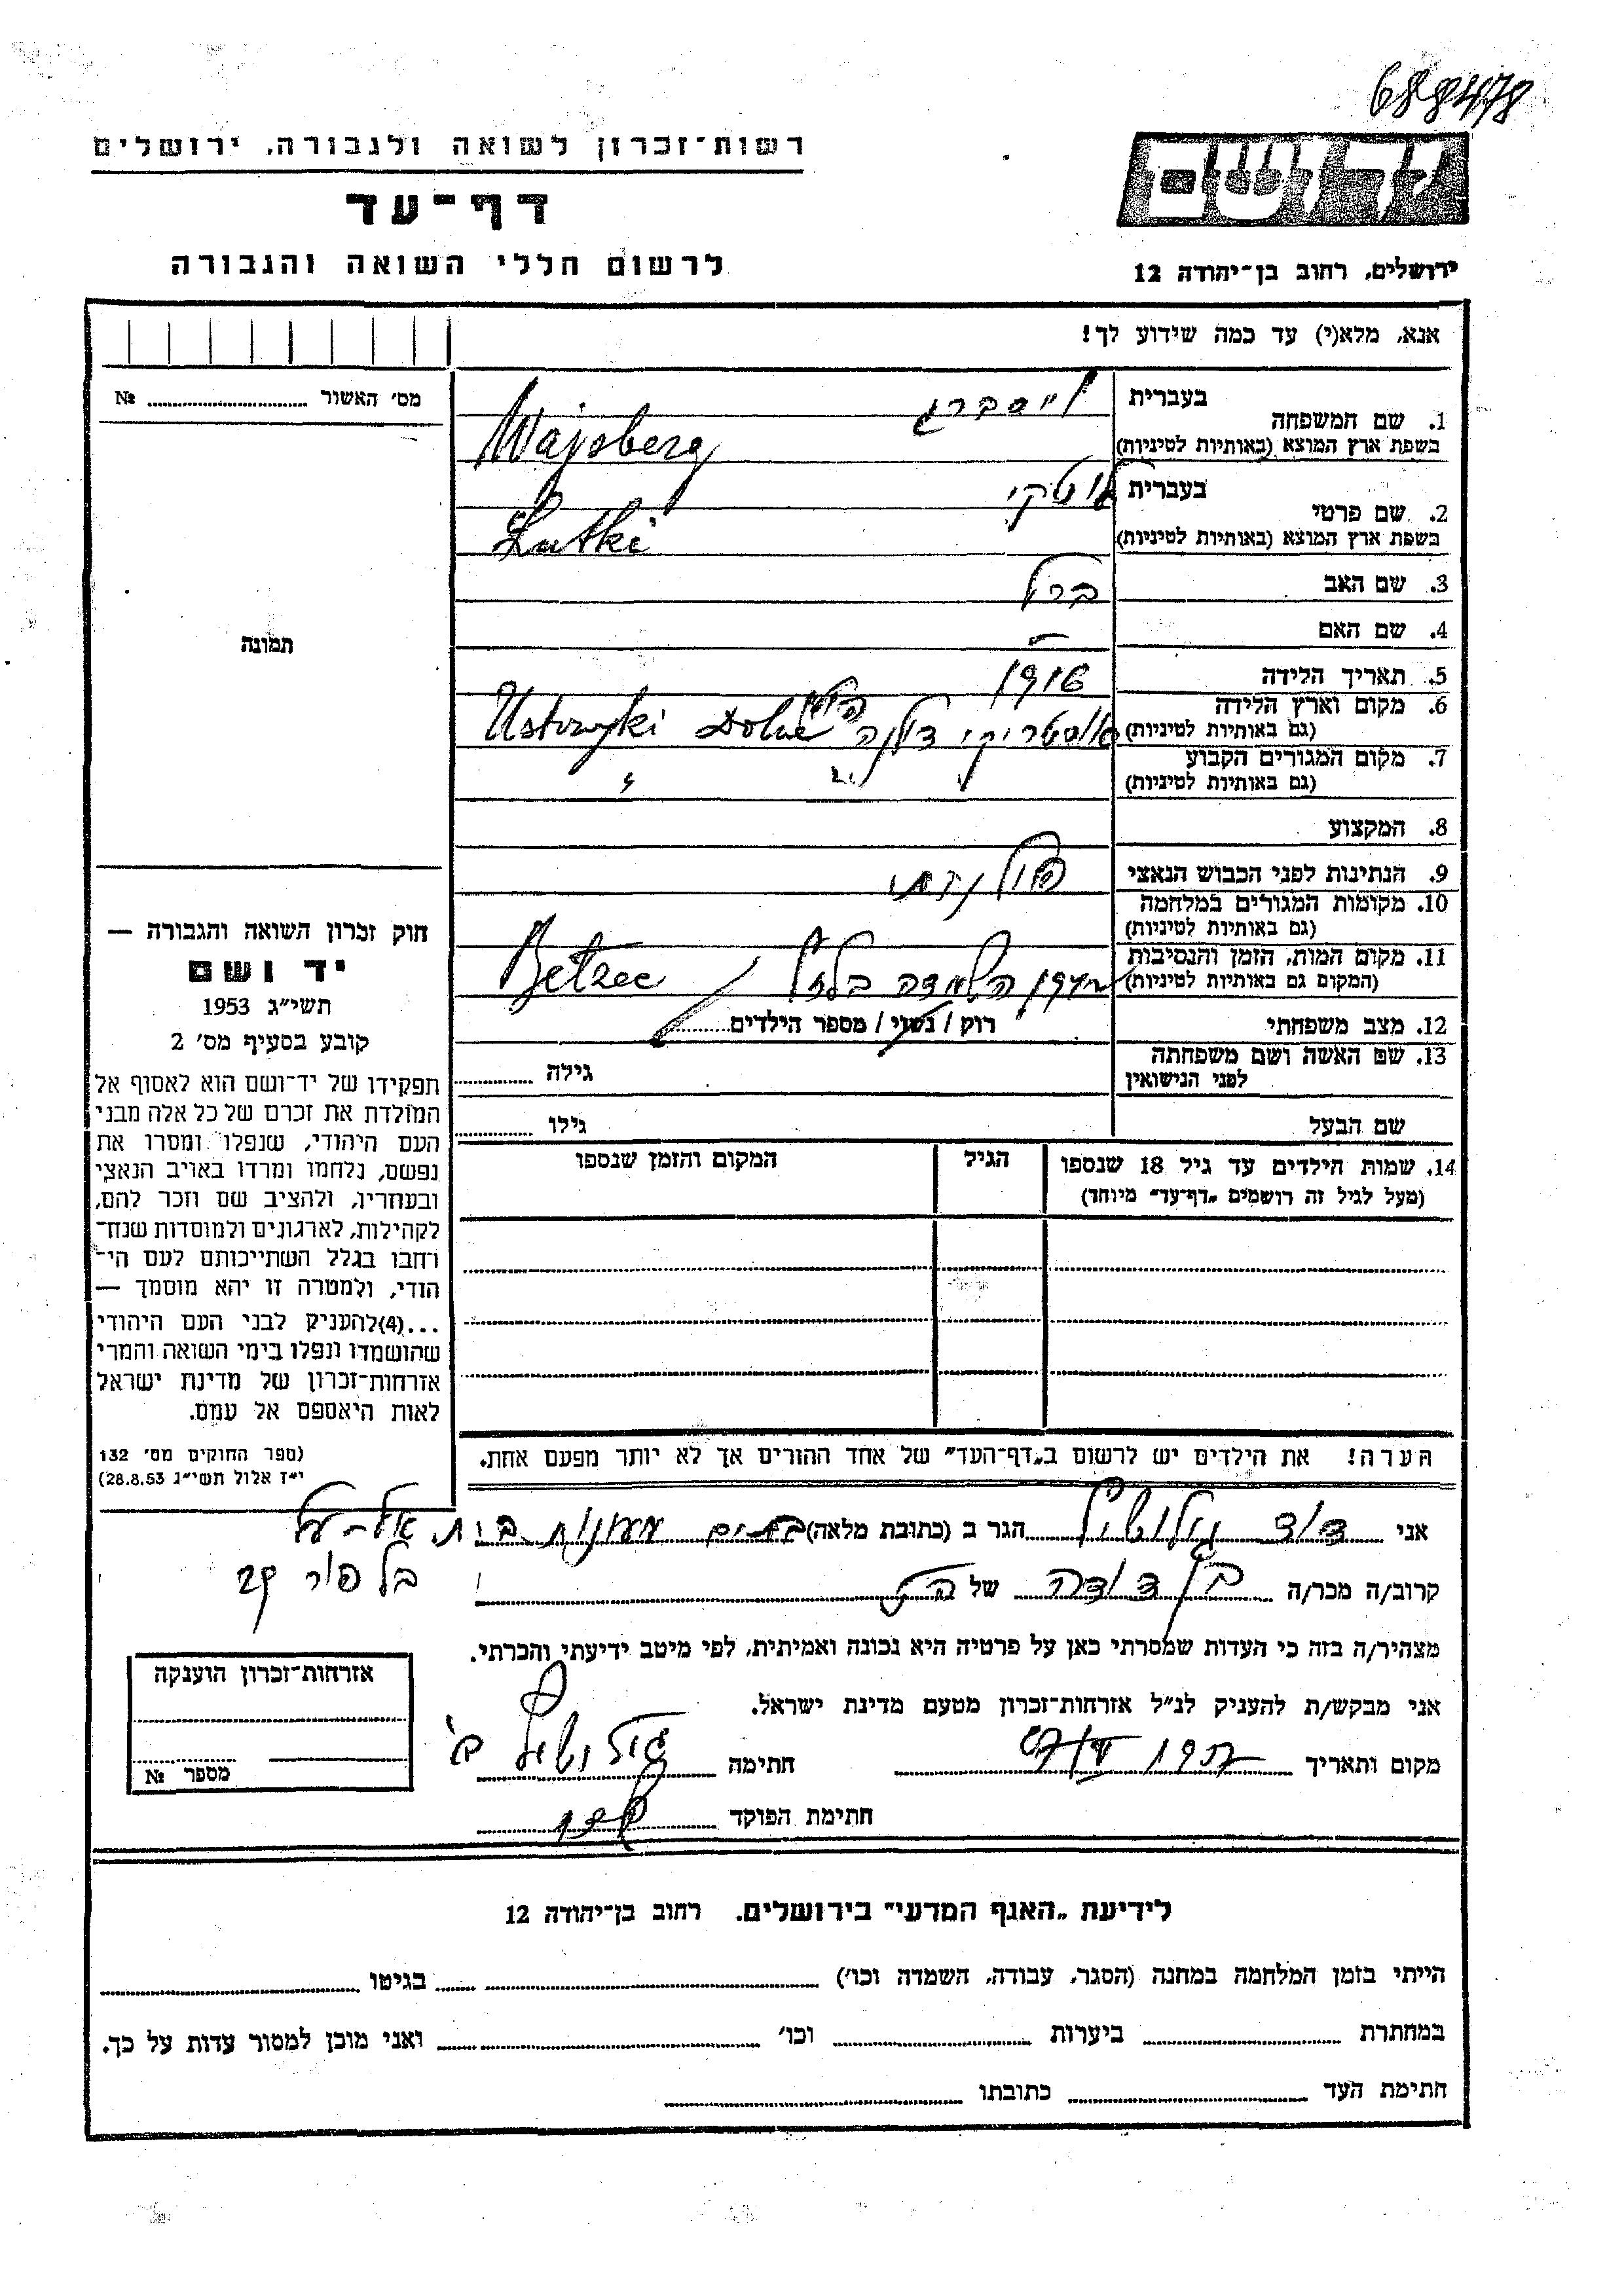 688478
רשות-זכרון לשואה ולגבורה, ירושלים
דף-עד
לרשום חללי השואה והגבורה
יד ושם
ירושלים, רחוב בן-יהודה 12
אנא, מלא(י) עד כמה שידוע לך!
מס' האשור № 
1. שם המשפחה בעברית וייסברג
בשפת ארץ המוצא (באותיות לטיניות) Wajsberg
2. שם פרטי בעברית לוטקי
בשפת ארץ המוצא (באותיות לטיניות) Lutki
3. שם האב ברל
4. שם האם —
5. תאריך הלידה 1916
6. מקום וארץ הלידה (גם באותיות לטיניות) אוסטריקי דולנה Ustrzyki Dolne
7. מקום המגורים הקבוע (גם באותיות לטיניות) " " "
8. המקצוע
9. הנתינות לפני הכבוש הנאצי פולנית
10. מקומות המגורים במלחמה (גם באותיות לטיניות)
11. מקום המות, הזמן והנסיבות (המקום גם באותיות לטיניות) מחנה השמדה בלזץ Bełzec
12. מצב משפחתי רוק / נשוי / מספר הילדים
13. שם האשה ושם משפחתה לפני הנישואין גילה
שם הבעל גילו
14. שמות הילדים עד גיל 18 שנספו (מעל לגיל זה רושמים „דף-עד" מיוחד) הגיל המקום והזמן שנספו
תמונה
חוק זכרון השואה והגבורה —
יד ושם
תשי"ג 1953
קובע בסעיף מס' 2
תפקידו של יד-ושם הוא לאסוף אל
המולדת את זכרם של כל אלה מבני
העם היהודי, שנפלו ומסרו את
נפשם, נלחמו ומרדו באויב הנאצי
ובעוזריו, ולהציב שם וזכר להם,
לקהילות, לארגונים ולמוסדות שנח-
רחבו בגלל השתייכותם לעם הי-
הודי, ולמטרה זו יהא מוסמך —
...(4)להעניק לבני העם היהודי
שהושמדו ונפלו בימי השואה והמרי
אזרחות-זכרון של מדינת ישראל
לאות היאספם אל עמם.
(ספר החוקים מס' 132
י"ז אלול תשי"ג 28.8.53)
הערה! את הילדים יש לרשום ב„דף-העד" של אחד ההורים אך לא יותר מפעם אחת.
אני דוד הגר ב (כתובת מלאה) בת-ים מעונות בית אל-על
בלפור
קרוב/ה מכר/ה בן דודה של הנ"ל
מצהיר/ה בזה כי העדות שמסרתי כאן על פרטיה היא נכונה ואמיתית, לפי מיטב ידיעתי והכרתי.
אני מבקש/ת להעניק לנ"ל אזרחות-זכרון מטעם מדינת ישראל.
מקום ותאריך חתימה
חתימת הפוקד
אזרחות-זכרון הוענקה
מספר №
לידיעת „האגף המדעי" בירושלים. רחוב בן-יהודה 12
הייתי בזמן המלחמה במחנה (הסגר, עבודה, השמדה וכו') בגיטו
במחתרת ביערות וכו' ואני מוכן למסור עדות על כך.
חתימת העד כתובתו